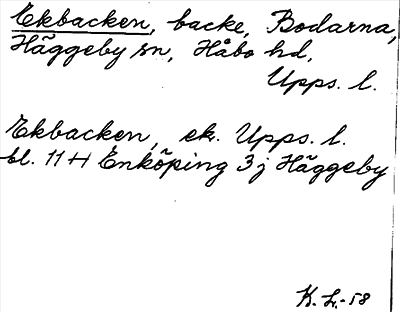 Ekbacken, backe, Bodarna,
Häggeby sn, Håbo hd,
Upps. l.
Ekbacken, ek. Upps. l.
bl. 11 H Enköping 3 j Häggeby
K. L.-58